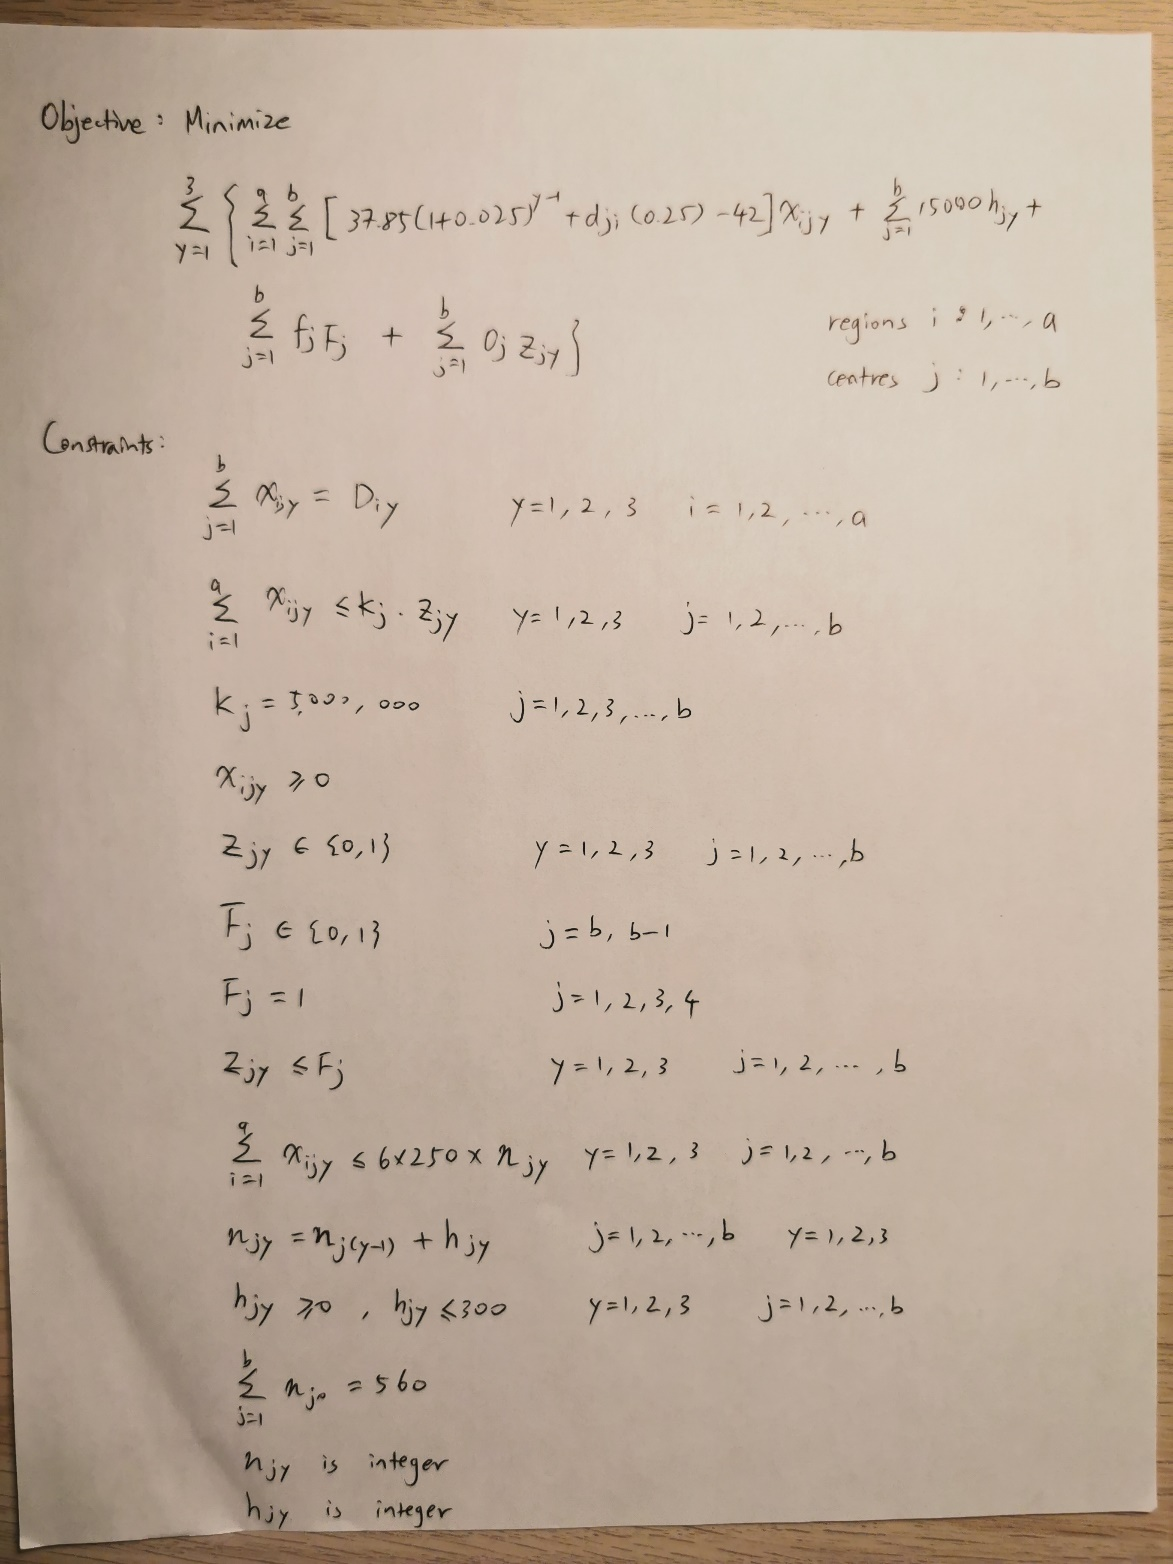 Objective: Minimize
3 a b b
Σ { Σ Σ [37.85(1+0.025)^{y-1} + d_{ji}(0.25) - 42] x_{ijy} + Σ 15000 h_{jy} +
y=1 i=1 j=1 j=1
b b
Σ f_j F_j + Σ O_j z_{jy} }
j=1 j=1
regions i : 1, ..., a
centres j : 1, ..., b
Constraints:
b
Σ x_{ijy} = D_{iy} y=1, 2, 3 i = 1,2, ..., a
j=1
a
Σ x_{ijy} ≤ k_j . z_{jy} y= 1,2,3 j= 1,2, ..., b
i=1
k_j = 5,000,000 j=1,2,3,...,b
x_{ijy} ≥ 0
z_{jy} ∈ {0,1} y = 1,2,3 j = 1,2, ..., b
F_j ∈ {0,1} j = b, b-1
F_j = 1 j= 1, 2, 3, 4
z_{jy} ≤ F_j y = 1, 2, 3 j= 1, 2, ..., b
a
Σ x_{ijy} ≤ 6×250× n_{jy} y= 1,2,3 j= 1,2, ..., b
i=1
n_{jy} = n_{j(y-1)} + h_{jy} j= 1,2, ..., b y= 1,2,3
h_{jy} ≥ 0 , h_{jy} ≤ 300 y=1,2,3 j=1,2, ..., b
b
Σ n_{j0} = 560
j=1
n_{jy} is integer
h_{jy} is integer